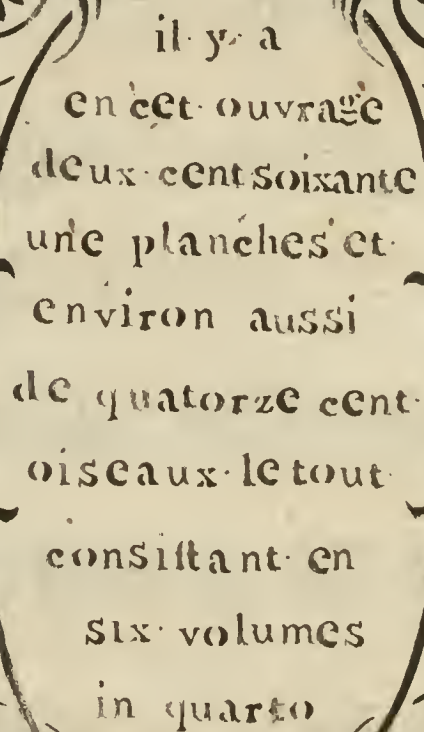 il y a
en cet ouvrage
deux cent soixante
une planches et
environ aussi
de quatorze cent
oiseaux le tout
consiſtant en
six volumes
in quarto